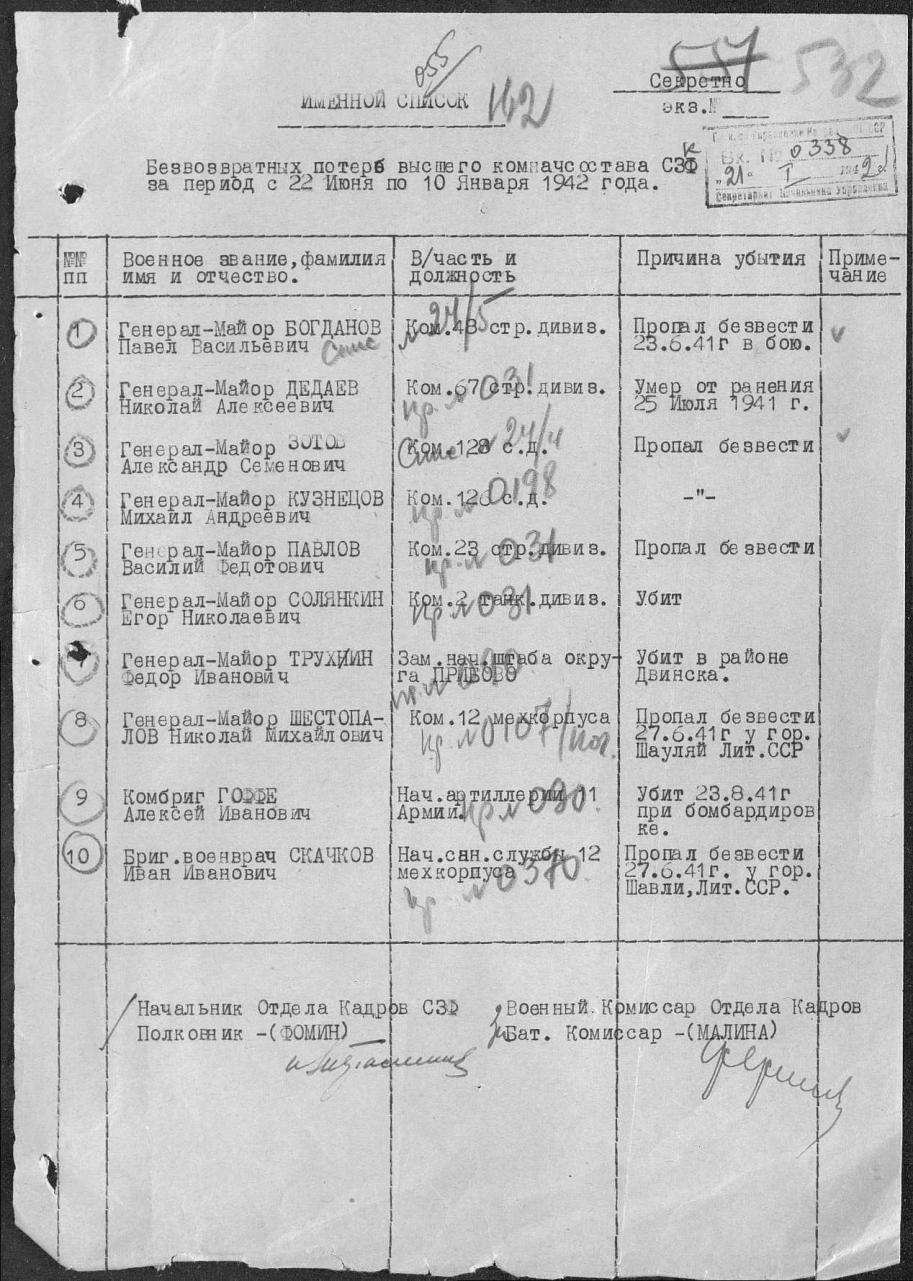 055
557
532
Секретно
ИМЕННОЙ СПИСОК
162
экз.№
Вх. № 0338
"21" I 1942 г.
Секретариат Начальника Управления
Безвозвратных потерь высшего комначсостава СЗФ
за период с 22 Июня по 10 Января 1942 года.
№№ пп
Военное звание,фамилия имя и отчество.
В/часть и должность
Причина убытия
Приме-чание
1
Генерал-Майор БОГДАНОВ
Ком.48 стр.дивиз.
Пропал безвести
Павел Васильевич
23.6.41г в бою.
№ 24/5
2
Генерал-Майор ДЕДАЕВ
Ком.67 стр.дивиз.
Умер от ранения
Николай Алексеевич
25 Июля 1941 г.
пр. № 031
3
Генерал-Майор ЗОТОВ
Ком.128 с.д.
Пропал безвести
Александр Семенович
№ 24/4
4
Генерал-Майор КУЗНЕЦОВ
Ком.126 с.д.
-"-
Михаил Андреевич
пр. № 0198
5
Генерал-Майор ПАВЛОВ
Ком.23 стр.дивиз.
Пропал безвести
Василий Федотович
пр. № 031
6
Генерал-Майор СОЛЯНКИН
Ком.2 танк.дивиз.
Убит
Егор Николаевич
пр № 031
7
Генерал-Майор ТРУХИИН
Зам.нач.штаба окру-
Убит в районе
Федор Иванович
га ПРИБОВО
Двинска.
8
Генерал-Майор ШЕСТОПА-
Ком.12 мехкорпуса
Пропал безвести
ЛОВ Николай Михайлович
27.6.41г у гор.
пр. № 0107/
Шауляй Лит.ССР
9
Комбриг ГОФФЕ
Нач.артиллерии 11
Убит 23.8.41г
Алексей Иванович
Армии.
при бомбардиров
пр № 030.
ке.
10
Бриг.военврач СКАЧКОВ
Нач.сан.службы 12
Пропал безвести
Иван Иванович
мехкорпуса
27.6.41г. у гор.
пр. № 0370.
Шавли,Лит.ССР.
Начальник Отдела Кадров СЗФ
Военный Комиссар Отдела Кадров
Полковник -(ФОМИН)
Бат. Комиссар -(МАЛИНА)